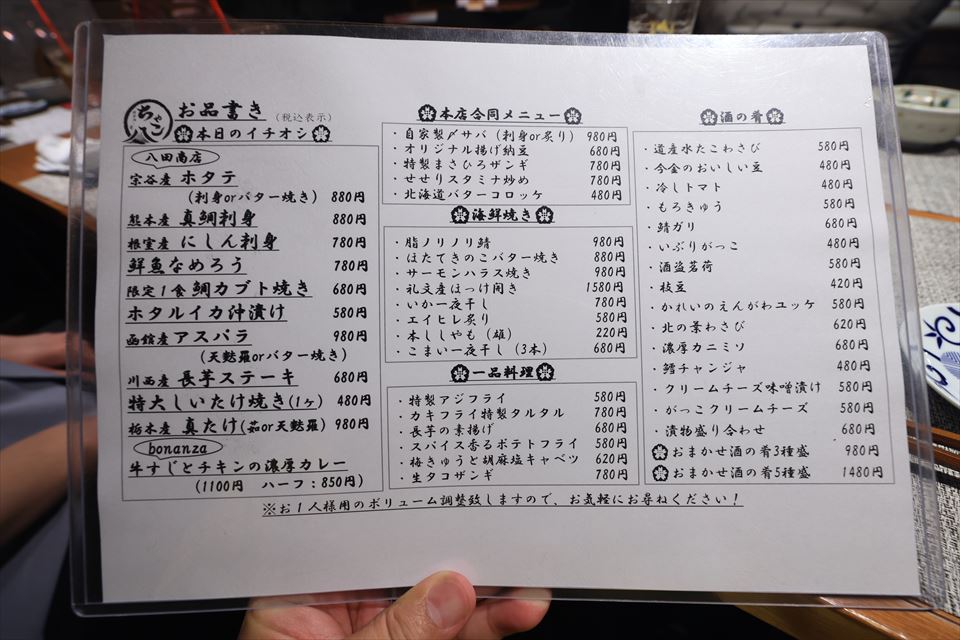 ちゃこ八
お品書き (税込表示)
本日のイチオシ
八田商店
宗谷産 ホタテ
(刺身orバター焼き) 880円
熊本産 真鯛刺身 880円
根室産 にしん刺身 780円
鮮魚なめろう 780円
限定1食 鯛カブト焼き 680円
ホタルイカ沖漬け 580円
函館産 アスパラ 980円
(天麩羅orバター焼き)
川西産 長芋ステーキ 680円
特大しいたけ焼き(1ヶ) 480円
栃木産 真たけ(茹or天麩羅) 980円
bonanza
牛すじとチキンの濃厚カレー
(1100円 ハーフ:850円)
本店合同メニュー
・自家製〆サバ (刺身or炙り) 980円
・オリジナル揚げ納豆 680円
・特製まさひろザンギ 780円
・せせりスタミナ炒め 780円
・北海道バターコロッケ 480円
海鮮焼き
・脂ノリノリ鯖 980円
・ほたてきのこバター焼き 880円
・サーモンハラス焼き 980円
・礼文産ほっけ開き 1580円
・いか一夜干し 780円
・エイヒレ炙り 580円
・本ししやも (雄) 220円
・こまい一夜干し (3本) 680円
一品料理
・特製アジフライ 580円
・カキフライ特製タルタル 780円
・長芋の素揚げ 680円
・スパイス香るポテトフライ 580円
・梅きゅうと胡麻塩キャベツ 620円
・生タコザンギ 780円
酒の肴
・道産水たこわさび 580円
・今金のおいしい豆 480円
・冷しトマト 480円
・もろきゅう 580円
・鯖ガリ 680円
・いぶりがっこ 480円
・酒盗茗荷 580円
・枝豆 420円
・かれいのえんがわユッケ 580円
・北の葉わさび 620円
・濃厚カニミソ 680円
・鱈チャンジャ 480円
・クリームチーズ味噌漬け 580円
・がっこクリームチーズ 580円
・漬物盛り合わせ 680円
おまかせ酒の肴3種盛 980円
おまかせ酒の肴5種盛 1480円
※お1人様用のボリューム調整致しますので、お気軽にお尋ねください!